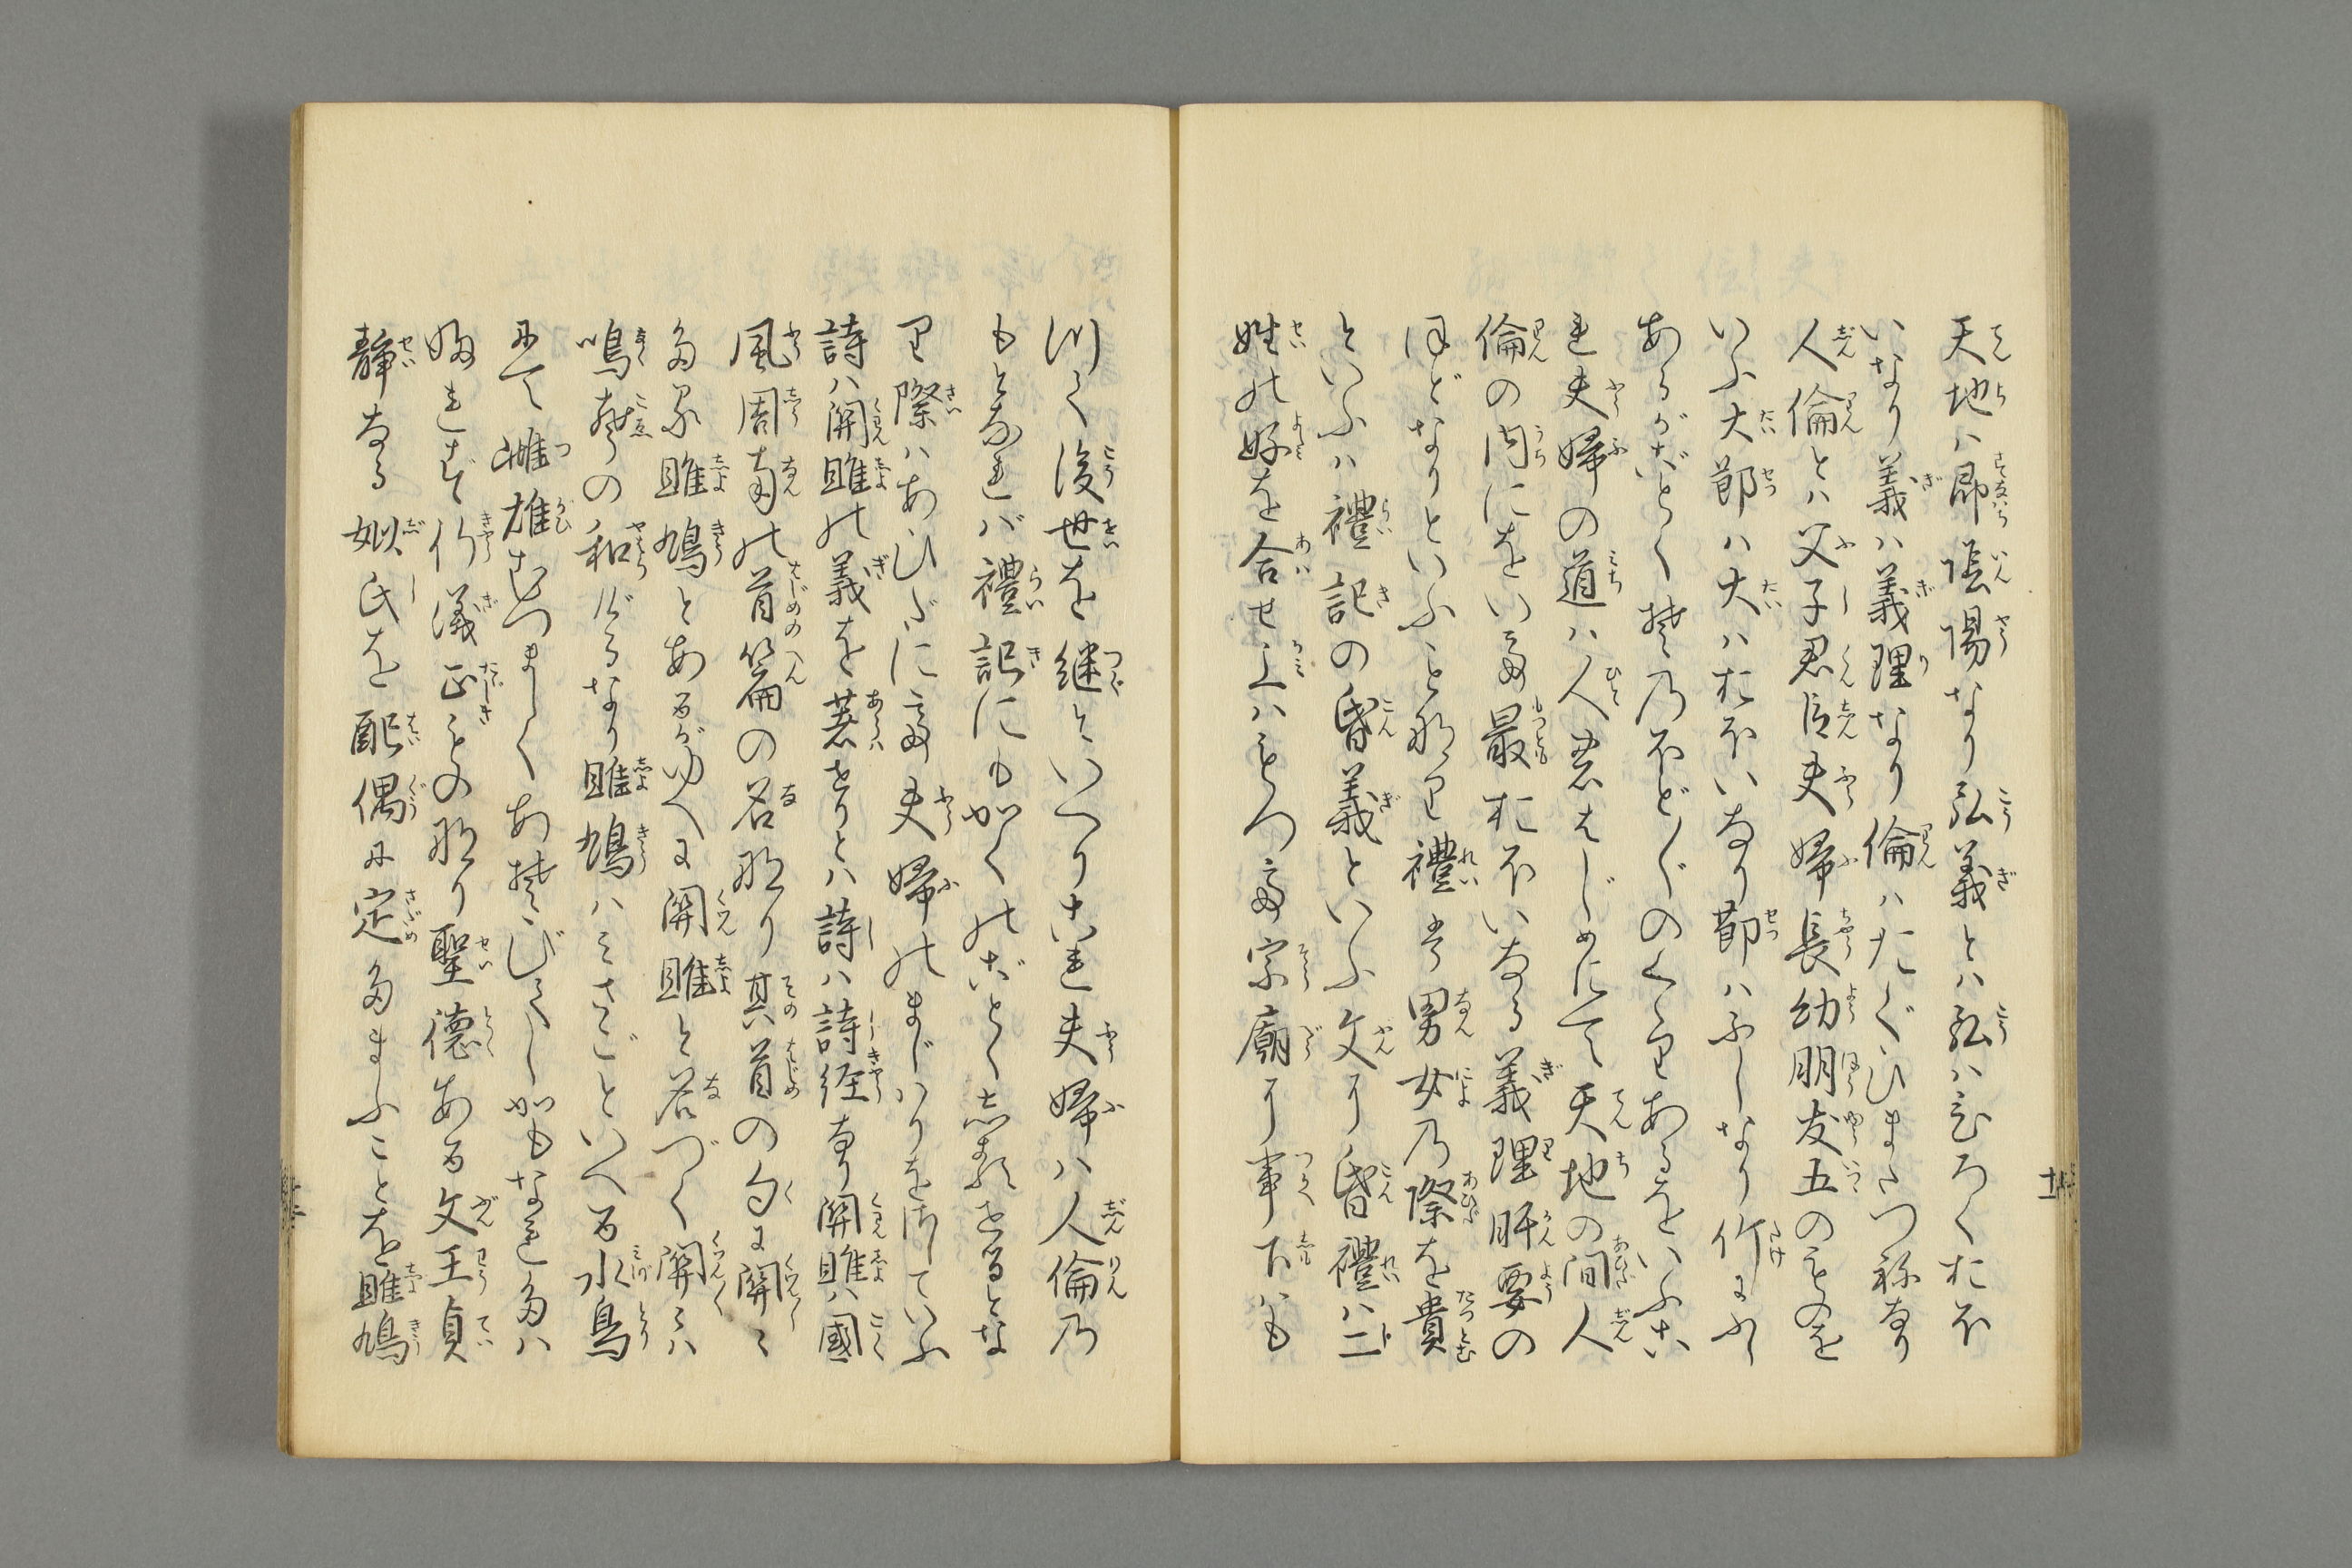 天地ハ即陰陽なり弘義とハ弘ハひろくおほ
いなり義ハ義理なり倫ハたぐひまたつねなり
人倫とハ父子君臣夫婦長幼朋友五のものを
いふ大節ハ大ハおほいなり節ハふしなり竹にふし
あるがごとく其のほど〱のくゝりあるをいふこ
れ夫婦の道ハ人君はじめにて天地の間人
倫の内にをいて最おほいなる義理肝要の
ほどなりといふこと也礼ハ男女乃際を貴
といふハ禮記の昏義といふ文に昏禮ハ二
姓の好を合せ上ハもつて宗廟に事下ハも
つて後世を継といへりこれ夫婦ハ人倫乃
もとなれば禮記にもかくのごとくしるせるとな
り際ハあひだにて夫婦のまじハりをさしていふ
詩ハ関雎の義を著せりとハ詩ハ詩経なり関雎ハ國
風周南の首篇の名なり其首の句に関〻
たる雎鳩とあるがゆへに関雎と名づく関〻ハ
鳴声の和ぐなり雎鳩ハみさごといへる水鳥
にて雌雄むつましくあそびてしかもなれたハ
ふれず行儀正ものなり聖徳ある文王貞
静なる姒氏を配偶に定たまふことを雎鳩